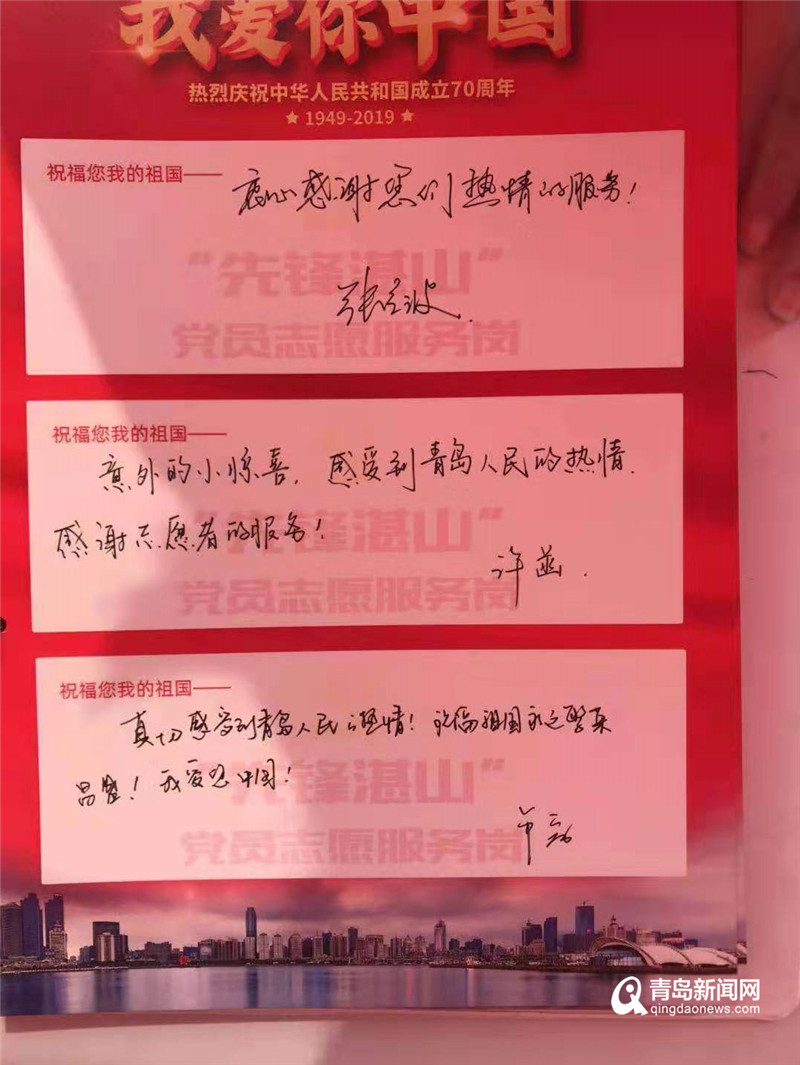 我爱你中国
热烈庆祝中华人民共和国成立70周年
★ 1949-2019 ★
祝福您我的祖国——
衷心感谢您们热情的服务！
"先锋湛山"
党员志愿服务岗
祝福您我的祖国——
意外的小惊喜，感受到青岛人民的热情.
感谢志愿者的服务！
"先锋湛山"
许菡.
党员志愿服务岗
祝福您我的祖国——
真切感受到青岛人民的热情！祝福祖国永远繁荣
昌盛！我爱您中国！
"先锋湛山"
党员志愿服务岗
青岛新闻网
qingdaonews.com